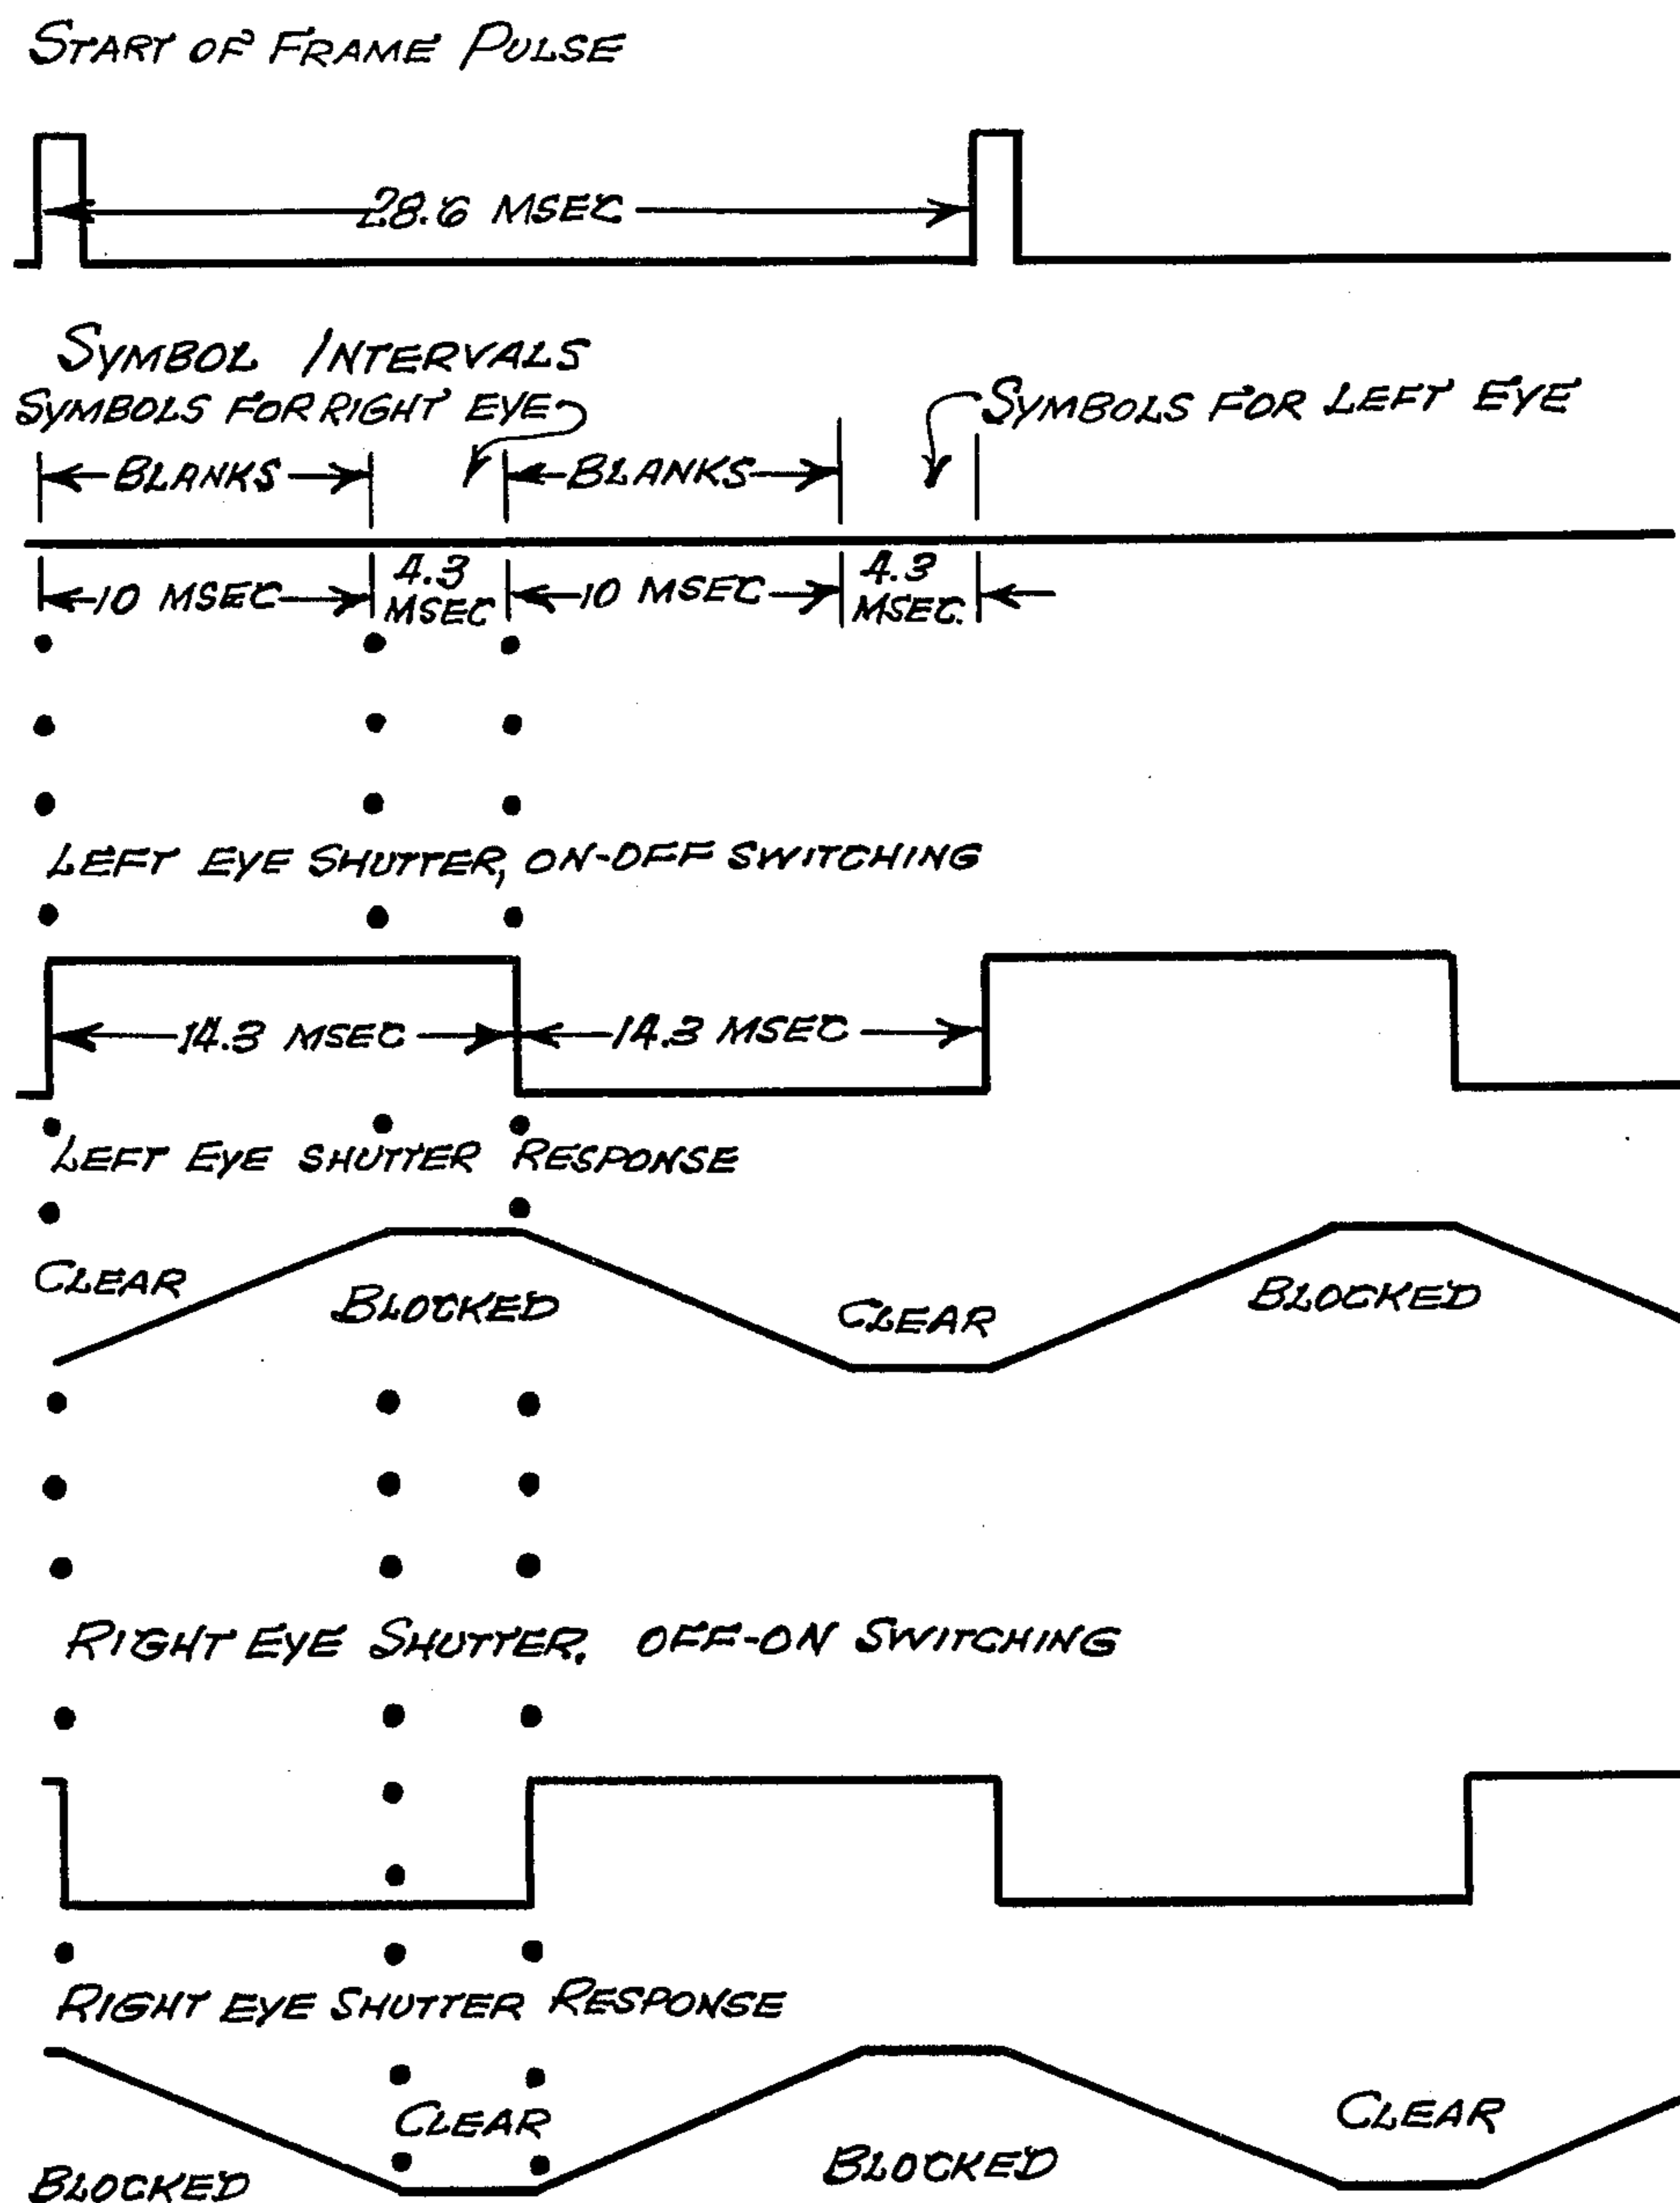 START OF FRAME PULSE
28.6 MSEC
SYMBOL INTERVALS
SYMBOLS FOR RIGHT EYE
SYMBOLS FOR LEFT EYE
BLANKS
BLANKS
10 MSEC
4.3
MSEC
10 MSEC
4.3
MSEC.
LEFT EYE SHUTTER, ON-OFF SWITCHING
14.3 MSEC
14.3 MSEC
LEFT EYE SHUTTER RESPONSE
CLEAR
BLOCKED
CLEAR
BLOCKED
RIGHT EYE SHUTTER. OFF-ON SWITCHING
RIGHT EYE SHUTTER RESPONSE
CLEAR
CLEAR
BLOCKED
BLOCKED